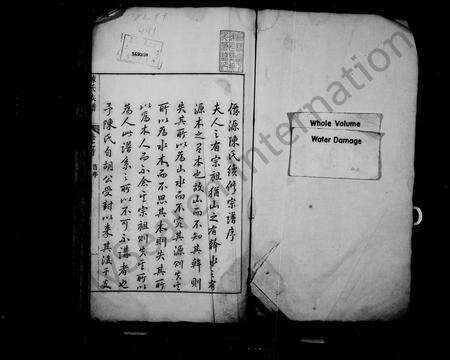 僑源陳氏續修宗譜序
夫人之有宗祖猶山之有幹水之有
源木之有本也故山而不知其幹則
失其所以為山水而不究其源則失其
所以為水木而不思其本則失其所
以為木人而不念其宗祖則失其所以
為人此譜系之所以不可不講者也
予陳氏自胡公受封以來其後千支
Whole Volume
Water Damage